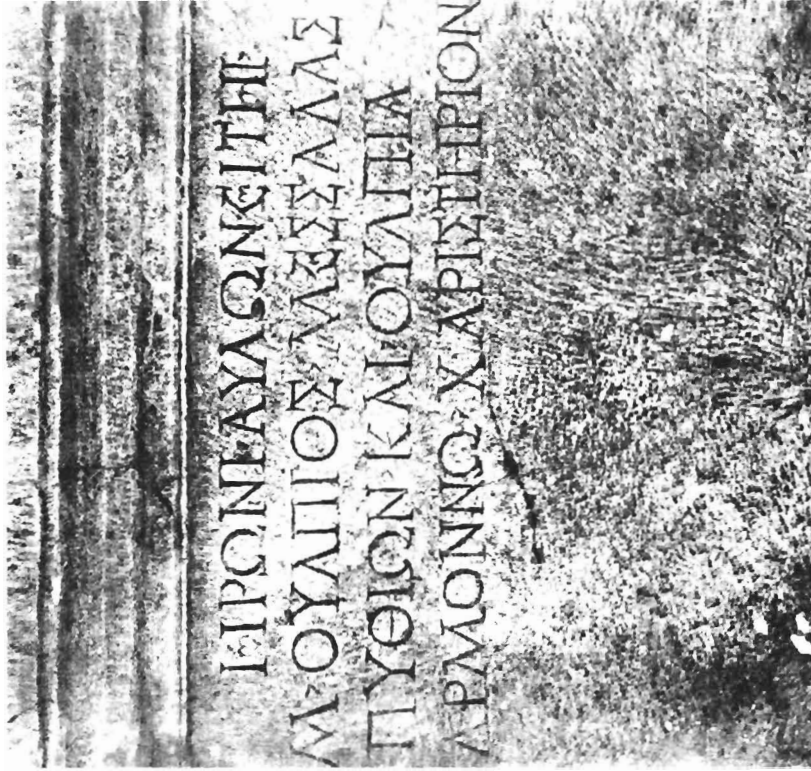 ΗΡΩΝΙΑΥΛΩΝΕΙΤΗΙ
Μ·ΟΥΛΠΙΟΣ·ΜΕΣΣΑΛΑΣ
ΠΥΘΙΩΝ·ΚΑΙ·ΟΥΛΠΙΑ
ΑΡΜΟΝΝΩ·ΧΑΡΙΣΤΗΡΙΟΝ